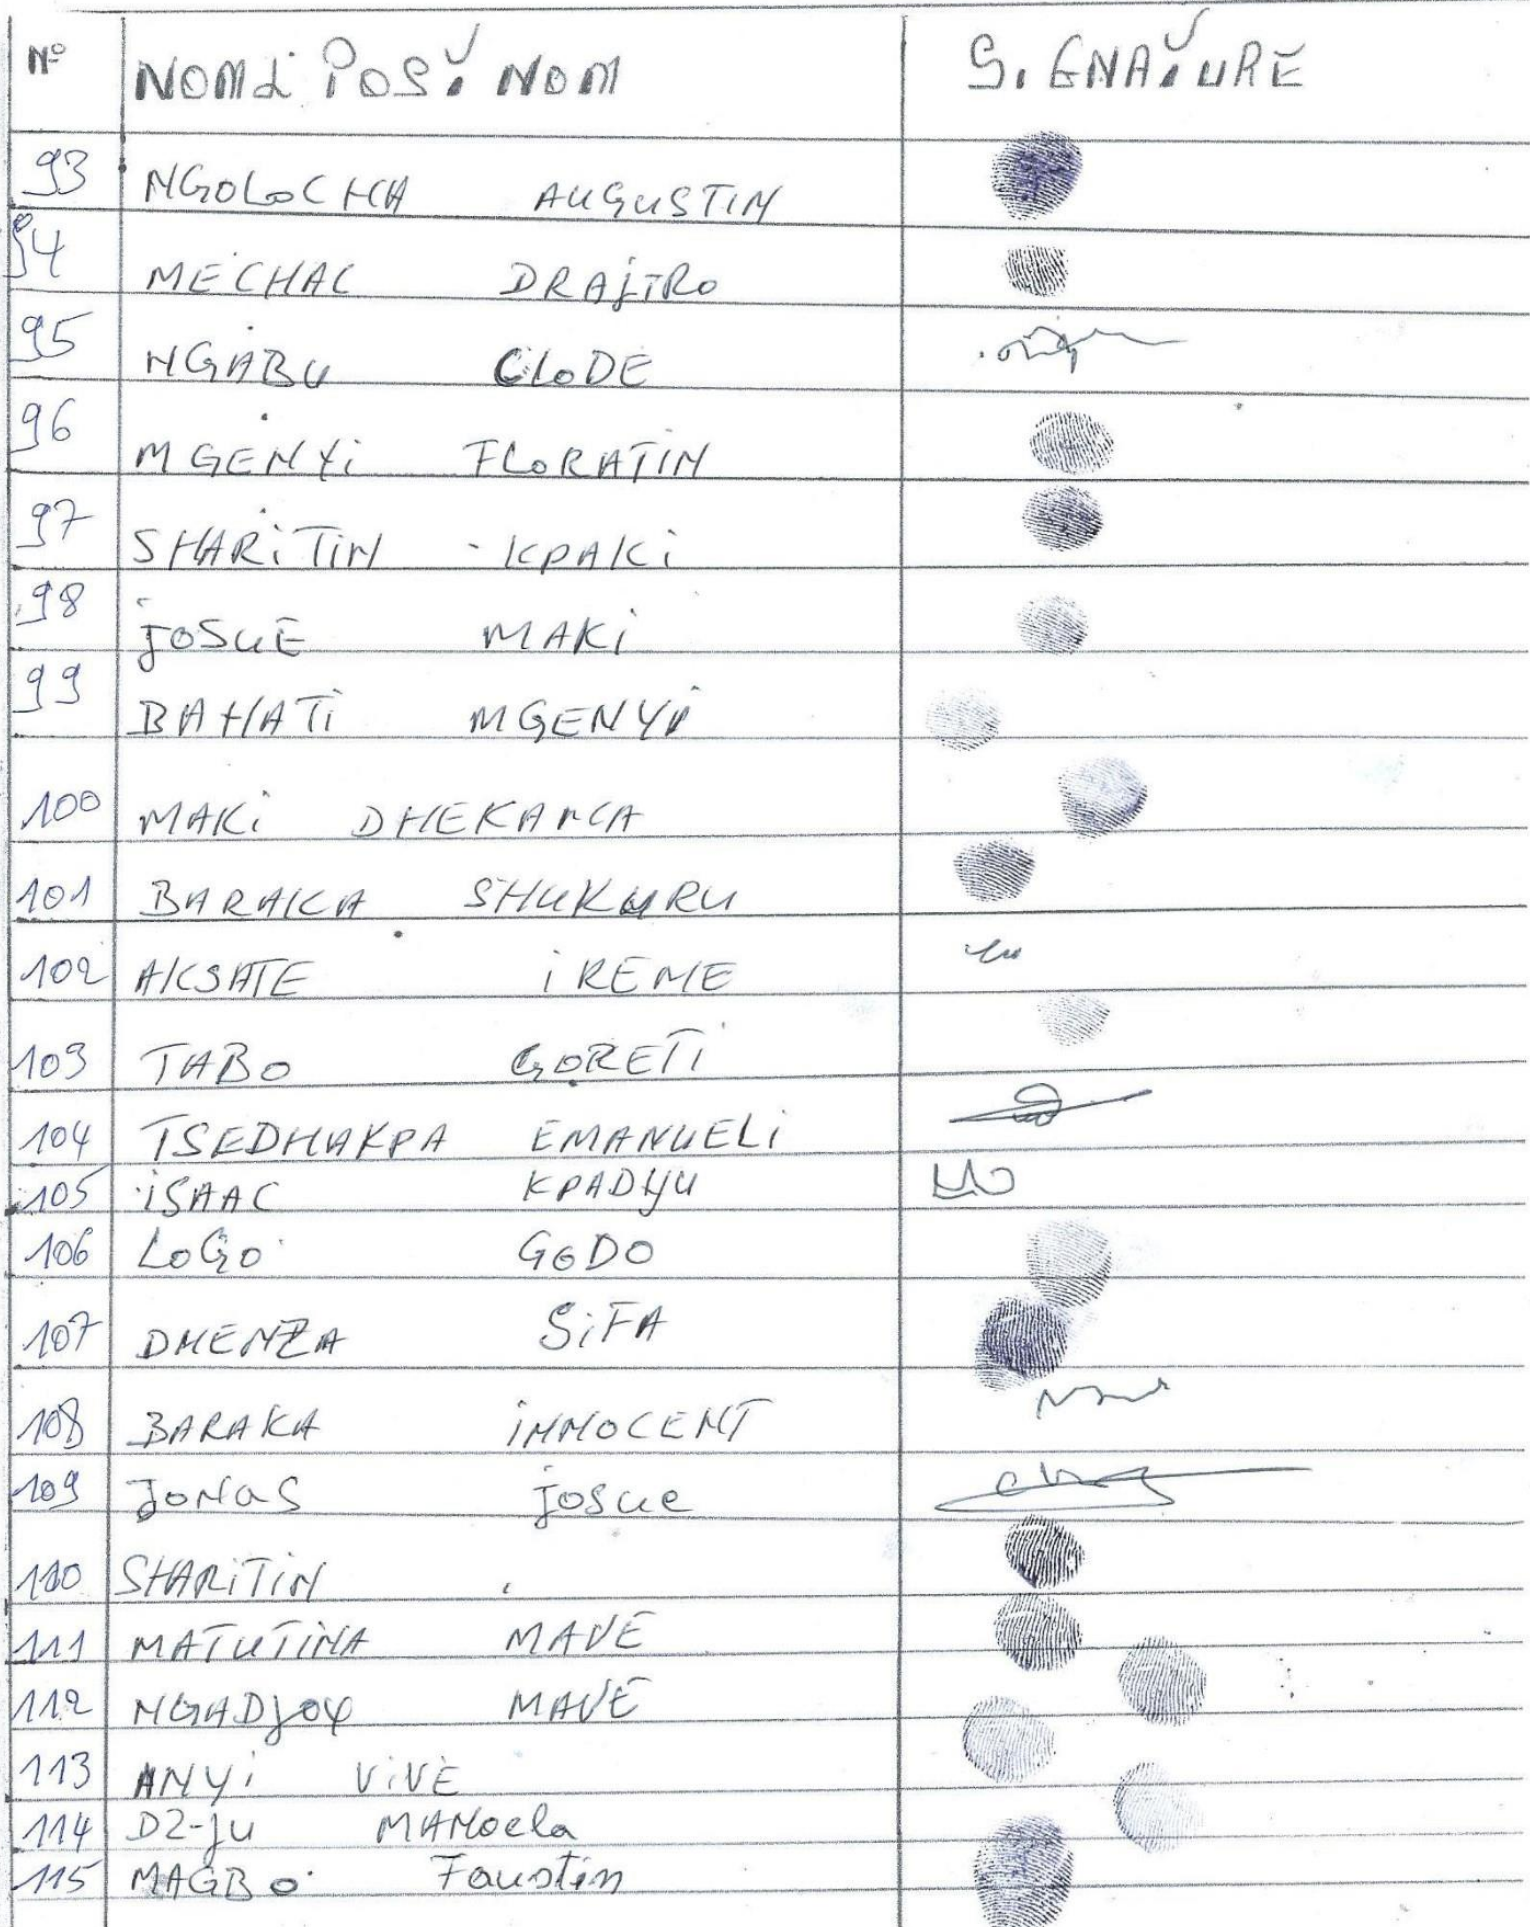 Nº NOM & POST. NOM SIGNATURE
93 NGOLOCHA AUGUSTIN
94 MECHAC DRAJIRO
95 NGABU CLODE
96 MGENYi FLORATIN
97 SHARiTIN KPAKi
98 JOSUE MAKi
99 BAHATi MGENYi
100 MAKi
101 BARAKA SHUKURU
102 AKSATE iREME
103 TABO GORETi
104 TSEDHAKPA EMANUELi
105 iSAAC KPADYU
106 LOGO GODO
107 DHENZA SiFA
108 BARAKA iNNOCENT
109 JONAS Josue
110 SHARiTiN
111 MATUTINA MAVE
112 MAVE
113 ANYi ViVE
114 DZ-ju MANoela
115 MAGBO Faustin